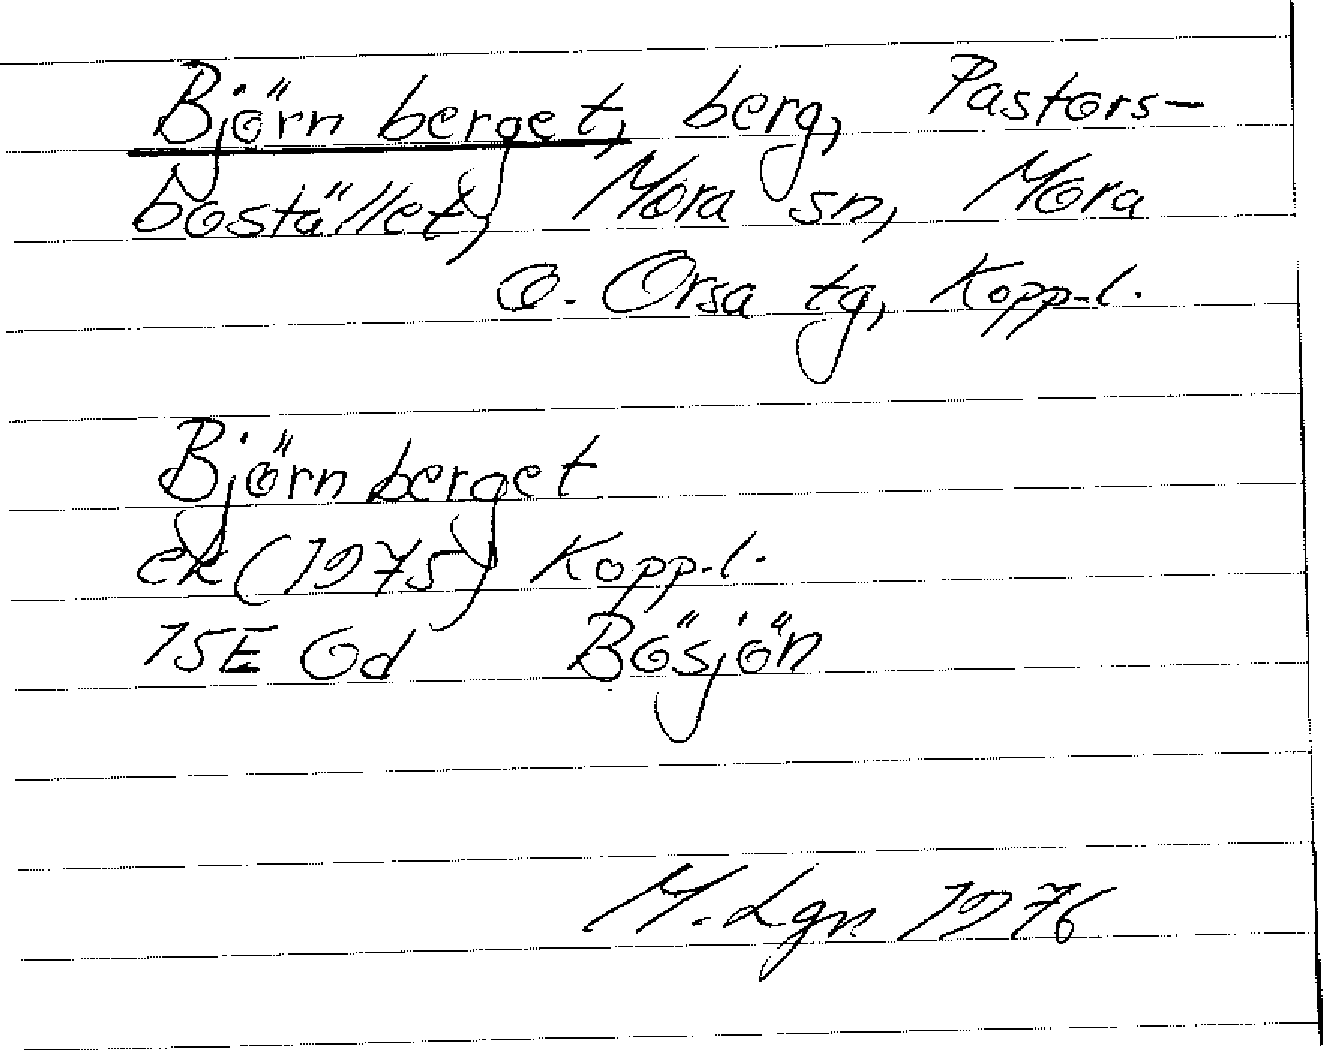 Björnberget, berg, Pastors-
bostället, Mora sn, Mora
o. Orsa tg, Kopp.l.
Björnberget
ek (1975) Kopp.l.
15E 0d Bösjön
M. Lgn 1976